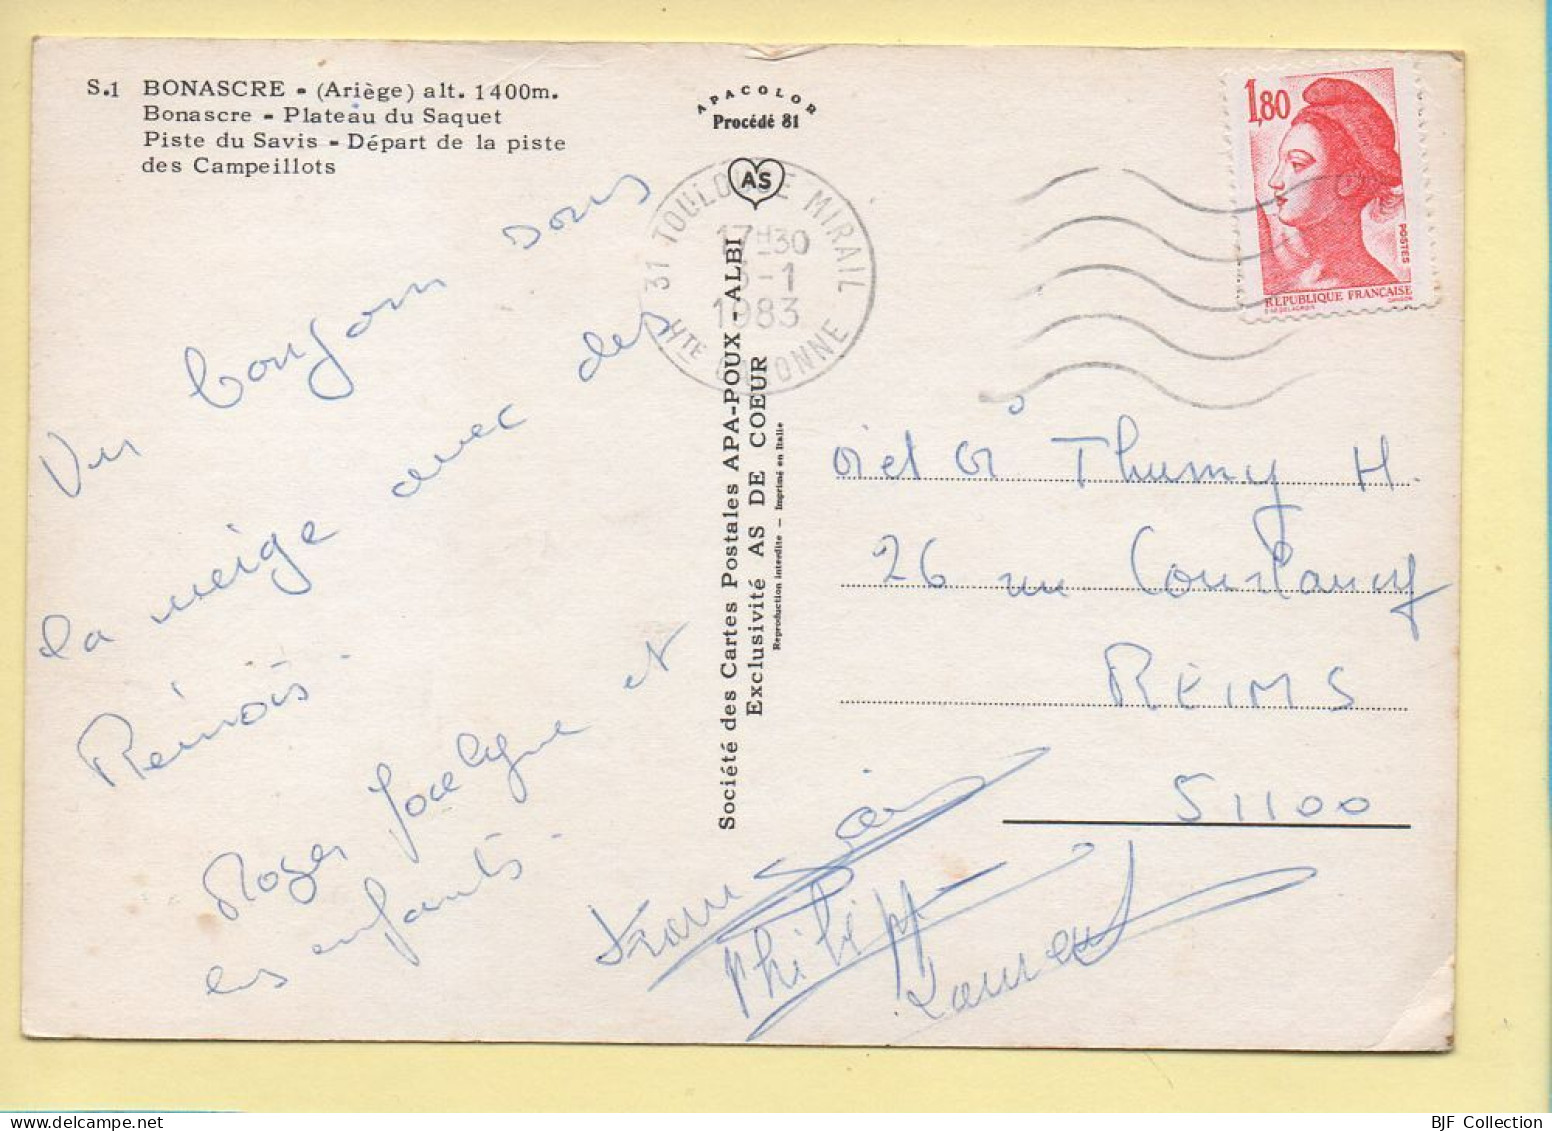 S.1 BONASCRE - (Ariège) alt. 1400m.
Bonascre - Plateau du Saquet
Piste du Savis - Départ de la piste
des Campeillots
APACOLOR
Procédé 81
AS
31 TOULOUSE MIRAIL
17H30
3-1
1983
HTE GARONNE
1,80
POSTES
RÉPUBLIQUE FRANÇAISE
Un bonjour sous
la neige avec des
Rémois.
Roger Jocelyne et
les enfants.
Philipp
Laurent
Société des Cartes Postales APA-POUX - ALBI
Exclusivité AS DE COEUR
Reproduction interdite - Imprimé en Italie
et Thumy H.
26 rue Courlancy
REIMS
51100
BJF Collection